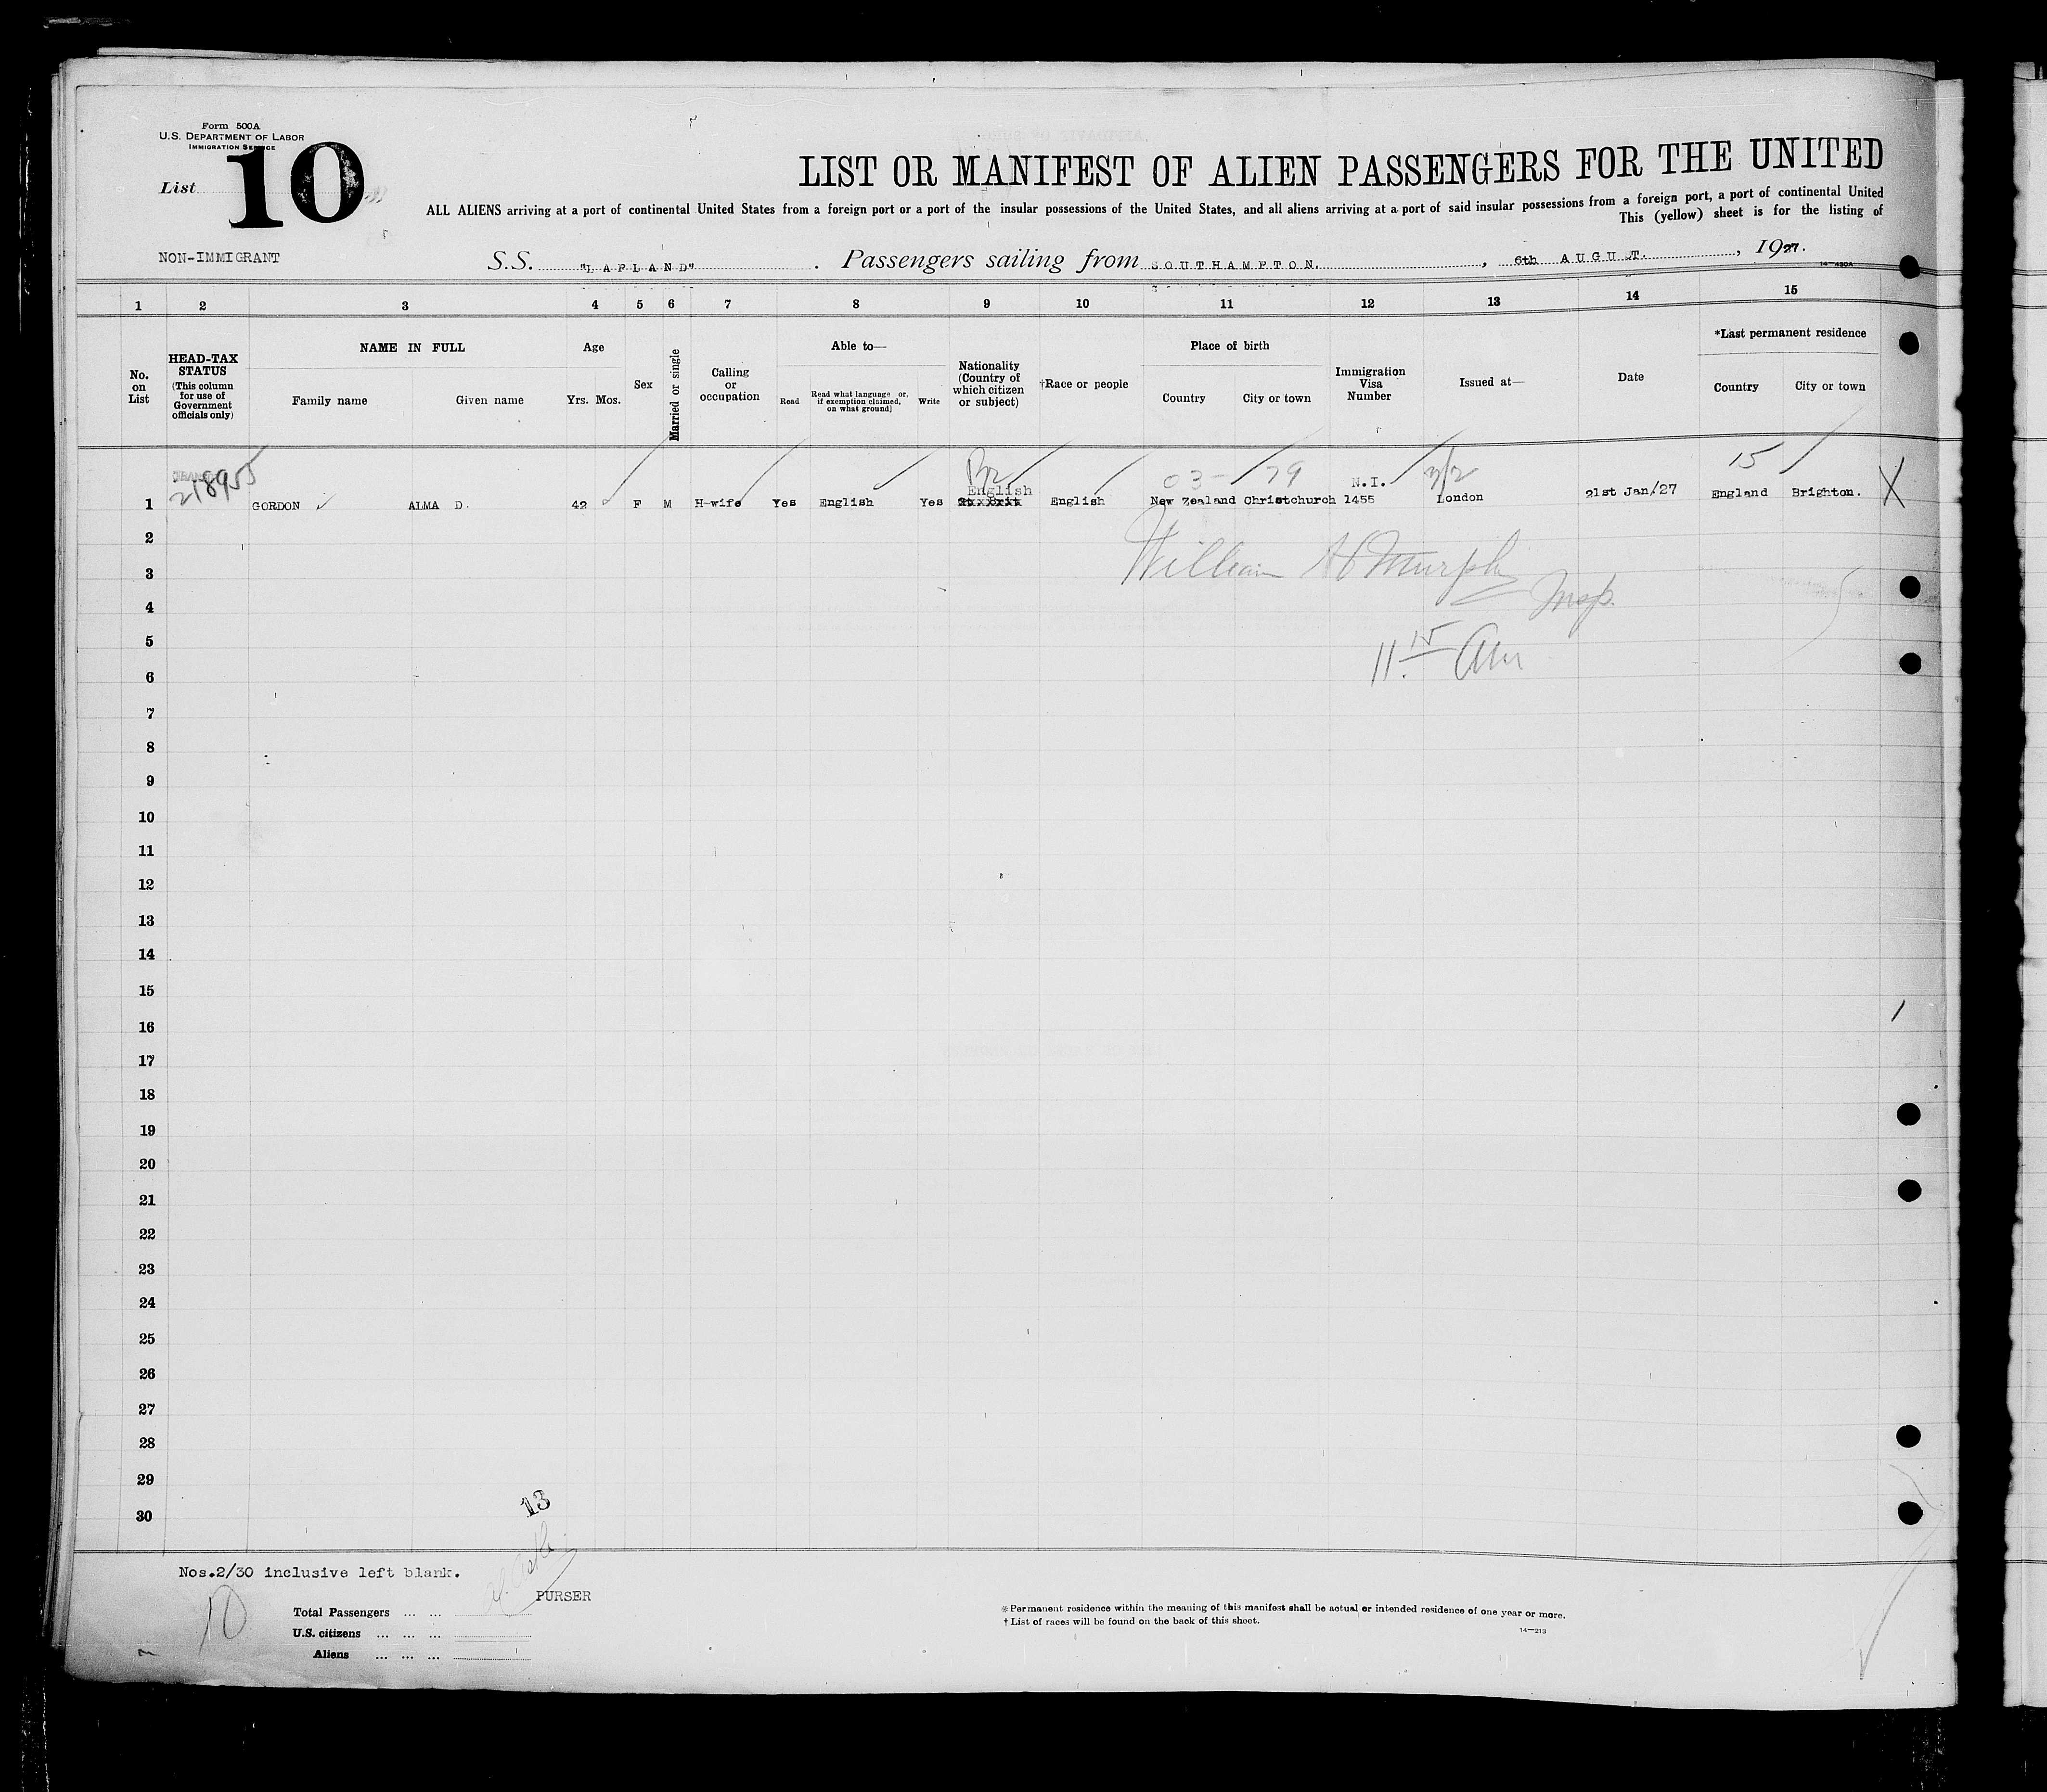 Form 500A
U.S. DEPARTMENT OF LABOR
IMMIGRATION SERVICE
List 10
LIST OR MANIFEST OF ALIEN PASSENGERS FOR THE UNITED
ALL ALIENS arriving at a port of continental United States from a foreign port or a port of the insular possessions of the United States, and all aliens arriving at a port of said insular possessions from a foreign port, a port of continental United
This (yellow) sheet is for the listing of
NON-IMMIGRANT
S.S. "LAPLAND". Passengers sailing from SOUTHAMPTON. , 6th AUGU T. , 1927.
14-430A
1 2 3 4 5 6 7 8 9 10 11 12 13 14 15
No. on List
HEAD-TAX STATUS (This column for use of Government officials only)
NAME IN FULL
Family name Given name
Age
Yrs. Mos.
Sex
Married or single
Calling or occupation
Able to—
Read Read what language or, if exemption claimed, on what ground] Write
Nationality (Country of which citizen or subject)
†Race or people
Place of birth
Country City or town
Immigration Visa Number
Issued at—
Date
*Last permanent residence
Country City or town
218955
03- 79 N.I. 15
English
1 GORDON ALMA D. 42 F M H-wife Yes English Yes English New Zealand Christchurch 1455 London 21st Jan/27 England Brighton. X
William H Murphy
Insp.
11.15 Am
2
3
4
5
6
7
8
9
10
11
12
13
14
15
16
17
18
19
20
21
22
23
24
25
26
27
28
29
30
13
Nos.2/30 inclusive left blank.
10
PURSER
Total Passengers ... ...
U.S. citizens ... ... ...
Aliens ... ... ...
*Permanent residence within the meaning of this manifest shall be actual or intended residence of one year or more.
†List of races will be found on the back of this sheet.
14—213